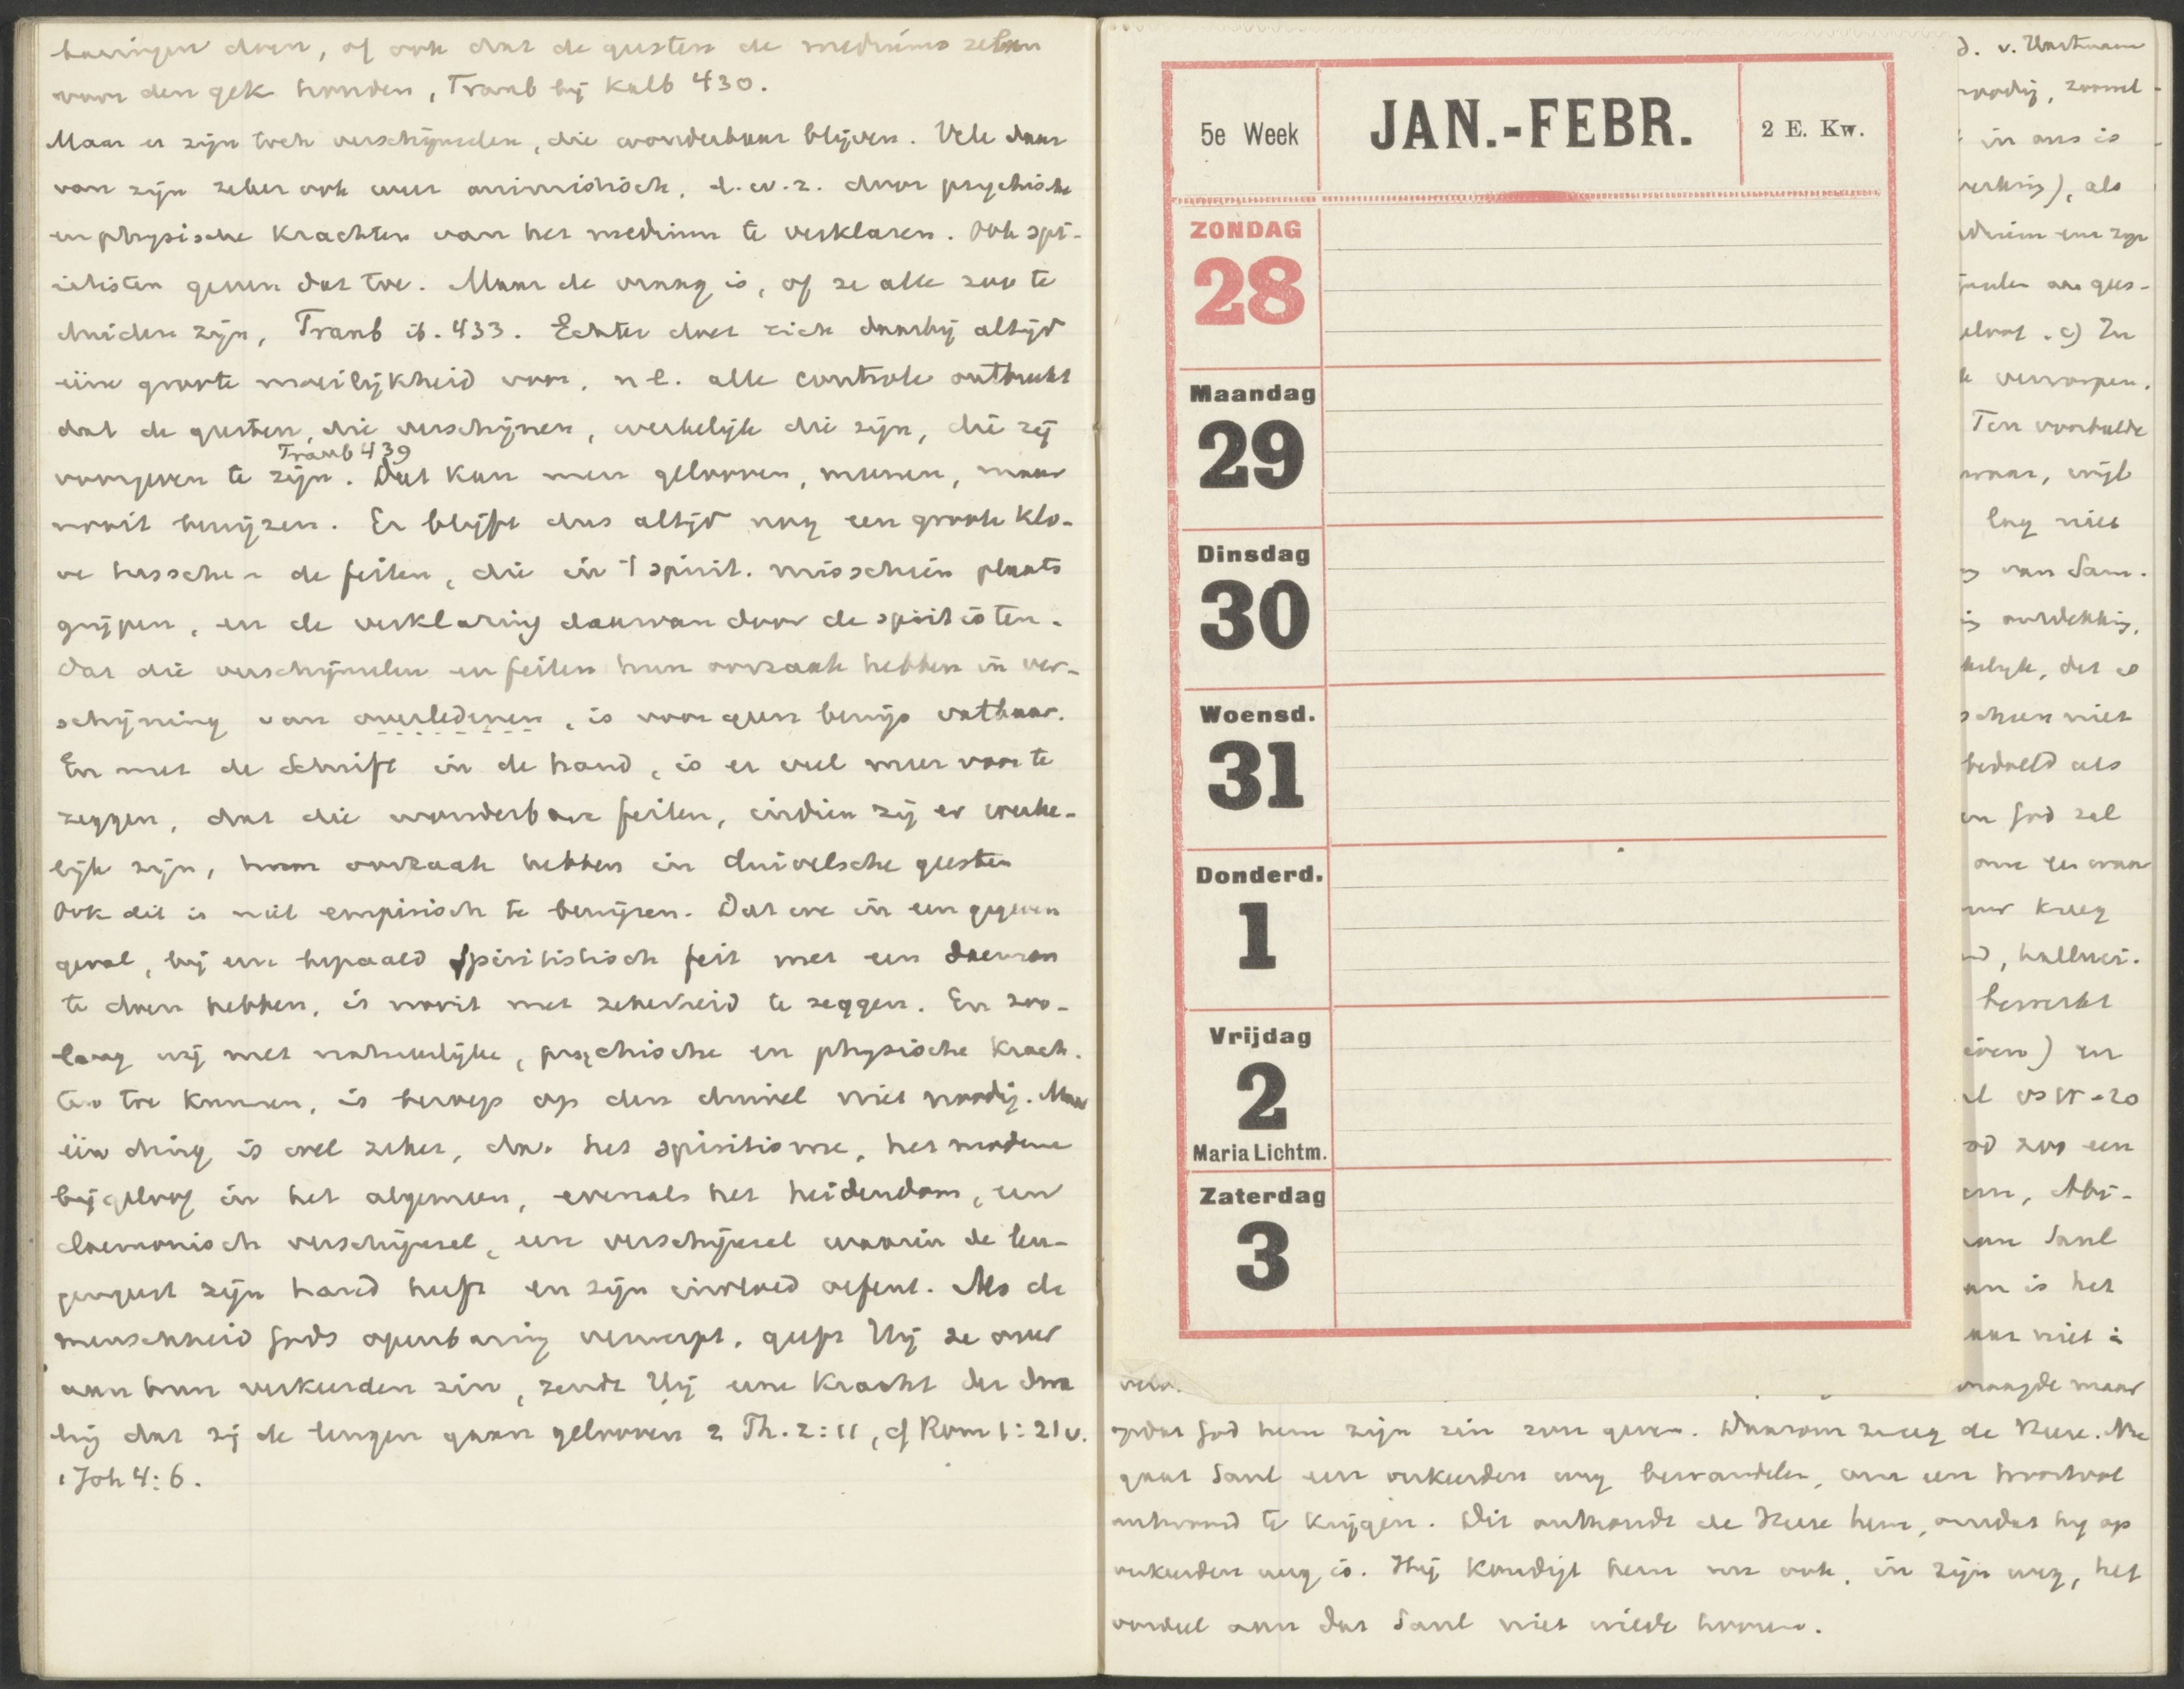 doen, of ook dat de geesten de mediums zelven
voor den gek houden, Traub bij Kalb 430.
Maar er zijn toch verschijnselen, die wonderbaar blijven. Vele daar
van zijn zeker ook weer animistisch, d.w.z. door psychische
en physische krachten van het medium te verklaren. Ook spi-
ritisten geven dat toe. Maar de vraag is, of ze alle zoo te
duiden zijn, Traub ib. 433. Echter doet zich daarbij altijd
eene groote moeilijkheid voor, nl. alle controle ontbreekt
dat de geesten, die verschijnen, werkelijk die zijn, die zij
Traub 439
voorgeven te zijn. Dat kan men gelooven, meenen, maar
nooit bewijzen. Er blijft dus altijd nog een groote klo-
ve tusschen de feiten, die in 't spirit. misschien plaats
grijpen, en de verklaring daarvan door de spiritisten.
Dat die verschijnselen en feiten hun oorzaak hebben in ver-
schijning van overledenen, is voor geen bewijs vatbaar.
En met de Schrift in de hand, is er veel meer voor te
zeggen, dat die wonderbare feiten, indien zij er werke-
lijk zijn, hun oorzaak hebben in duivelsche geesten
Ook dit is niet empirisch te bewijzen. Dat we in een gegeven
geval, bij een bepaald spiritistisch feit met een daemon
te doen hebben, is nooit met zekerheid te zeggen. En zoo-
lang wij met natuurlijke, psychische en physische krach-
ten toe kunnen, is beroep op den duivel niet noodig. Maar
één ding is wel zeker, dat het spiritisme, het moderne
bijgeloof in het algemeen, evenals het heidendom, een
daemonisch verschijnsel, een verschijnsel waarin de leu-
gengeest zijn hand heeft en zijn invloed oefent. Als de
menschheid Gods openbaring verwerpt, geeft Hij ze over
aan hun verkeerden zin, zendt Hij eene kracht der dwa
ling dat zij de leugen gaan gelooven 2 Th. 2:11, cf Rom 1:21v.
1 Joh 4:6.
5e Week
JAN.-FEBR.
2 E. Kw.
ZONDAG
28
Maandag
29
Dinsdag
30
Woensd.
31
Donderd.
1
Vrijdag
2
Maria Lichtm.
Zaterdag
3
noodig, zoowel
in ons is
), als
c) In
verworpen.
Ten voorbeelde
lag niet
van Sam.
dat is
niet
bedoeld als
God zal
kreeg
, halluci-
bewerkt
) en
vs 15-20
zoo een
, Abi-
Saul
is het
niet
vraagde maar
opdat God hem zijn zin zou geven. Daarom zweeg de Heere. Nu
gaat Saul een verkeerden weg bewandelen, om een
antwoord te krijgen. Dit onthoudt de Heere hem, omdat hij op
verkeerden weg is. Hij kondigt hem nu ook, in zijn weg, het
oordeel aan dat Saul niet wilde hooren.